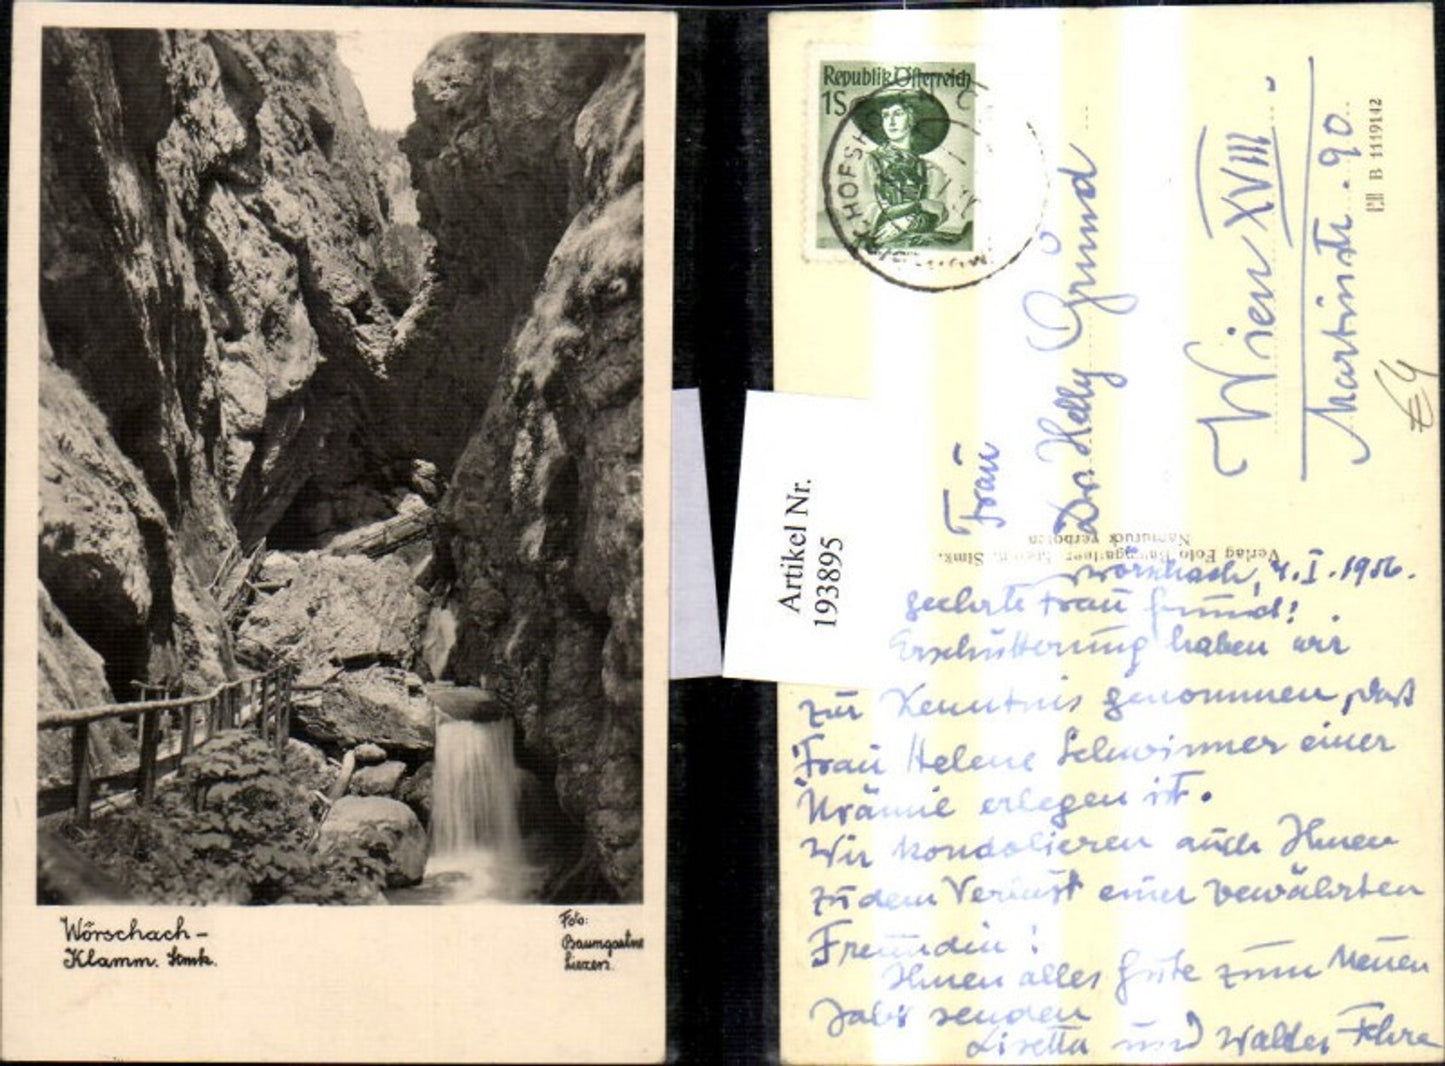 Wörschach-
Klamm. Stmk.
Foto:
Baumgartne
Liezen.
Artikel Nr.
193895
Republik Österreich
1S
Frau
Dr. Helly Grund
Wien XVIII
Martinstr. 90
B 1119142
Verlag Foto Baumgartner, Stmk.
Nachdruck verboten
Wörschach, 4.I.1956.
geehrte Frau Grund!
Erschütterung haben wir
zur Kenntnis genommen, daß
Frau Helene Schwimmer einer
Urämie erlegen ist.
Wir kondolieren auch Ihnen
zu dem Verlust einer bewährten
Freundin!
Ihnen alles Gute zum Neuen
Jahr senden
Lisetta und Walter Fehre